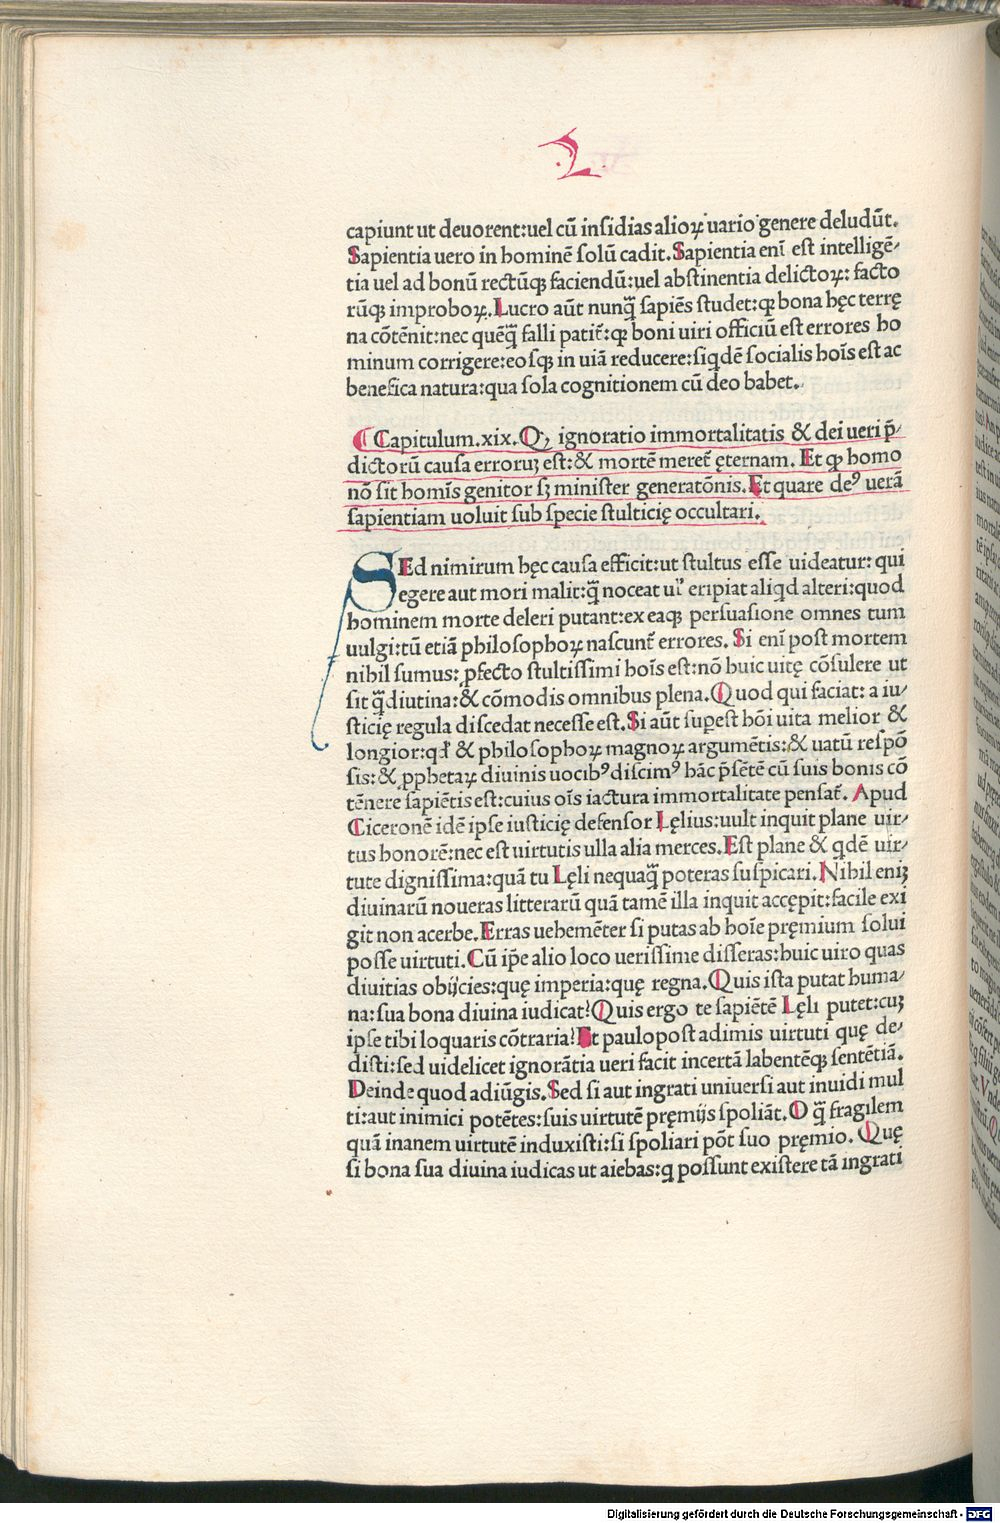 L
capiunt ut deuorent:uel cū insidias alioꝝ uario genere deludūt.
Sapientia uero in hominē solū cadit.Sapientia enī est intelligē/
tia uel ad bonū rectūqꝫ faciendū:uel abstinentia delictoꝝ: facto
rūqꝫ improboꝝ.Lucro aūt nunq̄ sapiēs studet:qꝛ bona hęc terrę
na cōtēnit:nec quēq̄ falli patit̄:qꝛ boni uiri officiū est errores ho
minum corrigere:eosqꝫ in uiā reducere:siqdē socialis hoīs est ac
benefica natura:qua sola cognitionem cū deo habet.
¶ Capitulum.xix.Qꝫ ignoratio immortalitatis & dei ueri p̄/
dictorū causa erroruꝫ est:& mortē meret̄ ęternam. Et qꝛ homo
nō sit homīs genitor sꝫ minister generatōnis.Et quare deꝰ uerā
sapientiam uoluit sub specie stulticię occultari.
SEd nimirum hęc causa efficit:ut stultus esse uideatur: qui
egere aut mori malit:q̄ noceat ul' eripiat aliqd alteri:quod
hominem morte deleri putant:ex eaqꝫ persuasione omnes tum
uulgi:tū etiā philosophoꝝ nascunt̄ errores. Si enī post mortem
nihil sumus: ꝓfecto stultissimi hoīs est:nō huic uitę cōsulere ut
sit q̄diutina:& cōmodis omnibus plena.Quod qui faciat: a iu/
sticię regula discedat necesse est.Si aūt suꝑest hōi uita melior &
longior:qđ & philosophoꝝ magnoꝝ argumētis:& uatū respō
sis:& ꝓphetaꝝ diuinis uocibꝰ discimꝰ hāc p̄sētē cū suis bonis cō
tēnere sapiētis est:cuius oīs iactura immortalitate pensat̄. Apud
Ciceronē idē ipse iusticię defensor Lęlius:uult inquit plane uir/
tus honorē:nec est uirtutis ulla alia merces.Est plane & qdē uir/
tute dignissima:quā tu Lęli nequaq̄ poteras suspicari.Nihil eniꝫ
diuinarū noueras litterarū quā tamē illa inquit accępit:facile exi
git non acerbe.Erras uehemēter si putas ab hoīe pręmium solui
posse uirtuti.Cū ip̄e alio loco uerissime disseras:huic uiro quas
diuitias obijcies:quę imperia:quę regna.Quis ista putat huma/
na:sua bona diuina iudicat?Quis ergo te sapiētē Lęli putet:cuꝫ
ipse tibi loquaris cōtraria?Et paulopost adimis uirtuti quę de/
disti:sed uidelicet ignorātia ueri facit incertā labentēqꝫ sentētiā.
Deinde quod adiūgis.Sed si aut ingrati uniuersi aut inuidi mul
ti:aut inimici potētes:suis uirtutē pręmijs spoliāt.O q̄ fragilem
quā inanem uirtutē induxisti:si spoliari pōt suo pręmio. Quę
si bona sua diuina iudicas ut aiebas:q possunt existere tā ingrati
Digitalisierung gefördert durch die Deutsche Forschungsgemeinschaft - DFG